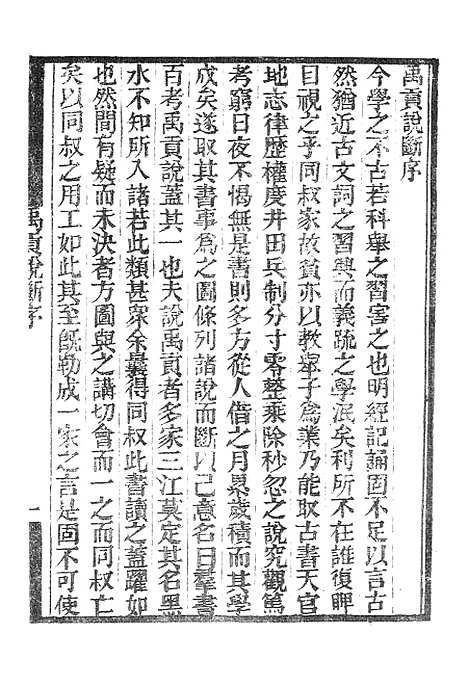 禹貢說斷序
今學之不古若科舉之習害之也明經記誦固不足以言古
然猶近古文詞之習興而義疏之學泯矣利所不在誰復睥
目視之乎同叔家故貧亦以教舉子為業乃能取古書天官
地志律歷權度井田兵制分寸零整乘除秒忽之說究觀篤
考窮日夜不愒無是書則多方從人借之月累歲積而其學
成矣遂取其書事為之圖條列諸說而斷以己意名曰羣書
百考禹貢說蓋其一也夫說禹貢者多家三江莫定其名黑
水不知所入諸若此類甚衆余曩得同叔此書讀之蓋躍如
也然間有疑而未決者方圖與之講切會而一之而同叔亡
矣以同叔之用工如此其至旣勒成一家之言是固不可使
禹貢說斷序
一